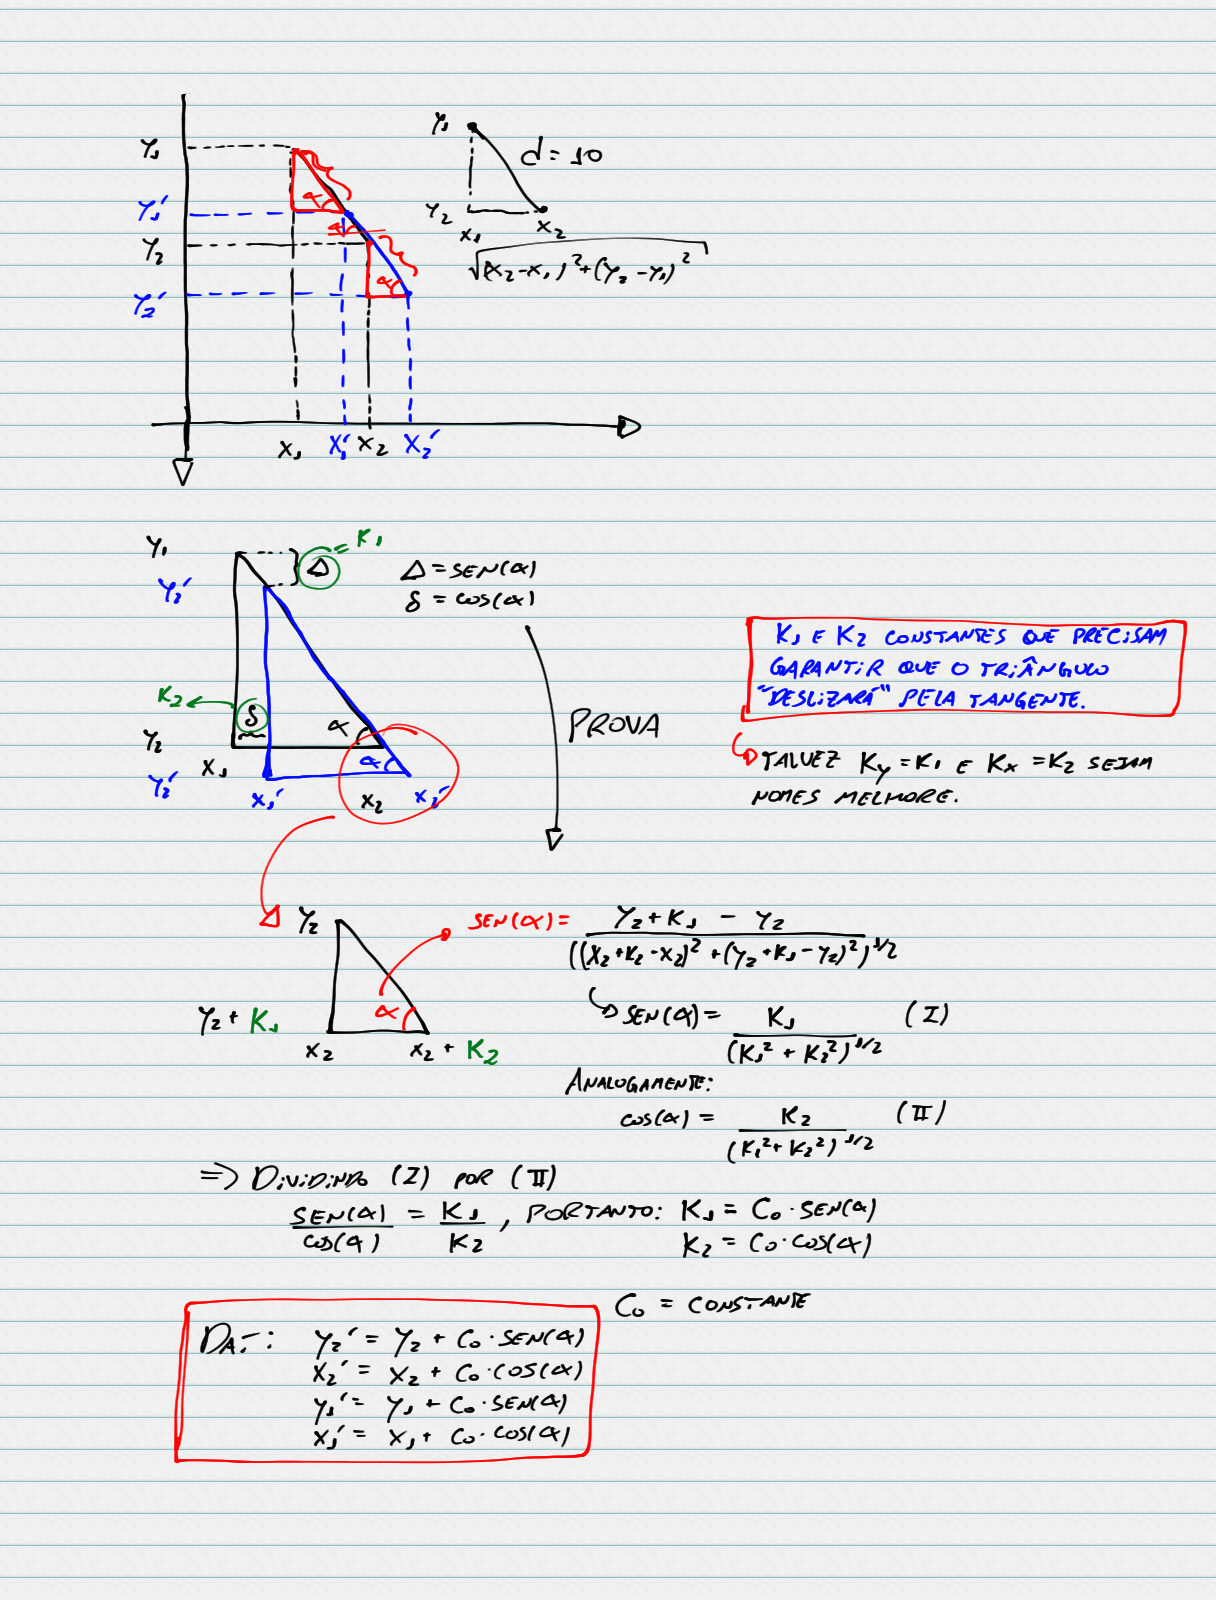 Y₁
Y₁'
Y₂
Y₂'
α
α
α
X₁ X₁' X₂ X₂'
Y₁
d = 10
Y₂
X₁ X₂
√(X₂-X₁)²+(Y₂-Y₁)²
Y₁
Y₂'
Δ = K₁
Δ = SEN(α)
δ = COS(α)
K₂
δ
α
Y₂
X₁
α
Y₂'
X₁' X₂ X₂'
PROVA
K₁ E K₂ CONSTANTES QUE PRECISAM
GARANTIR QUE O TRIÂNGULO
"DESLIZARÁ" PELA TANGENTE.
TALVEZ Ky = K₁ E Kx = K₂ SEJAM
NOMES MELHORE.
Y₂
α
Y₂ + K₁
X₂ X₂ + K₂
SEN(α) = Y₂ + K₁ - Y₂ / ((X₂+K₂-X₂)² + (Y₂+K₁-Y₂)²)^1/2
SEN(α) = K₁ / (K₁² + K₂²)^1/2 (I)
ANALOGAMENTE:
COS(α) = K₂ / (K₁² + K₂²)^1/2 (II)
=> DIVIDINDO (I) POR (II)
SEN(α) / COS(α) = K₁ / K₂ , PORTANTO: K₁ = C₀ · SEN(α)
K₂ = C₀ · COS(α)
C₀ = CONSTANTE
DAÍ: Y₂' = Y₂ + C₀ · SEN(α)
X₂' = X₂ + C₀ · COS(α)
Y₁' = Y₁ + C₀ · SEN(α)
X₁' = X₁ + C₀ · COS(α)